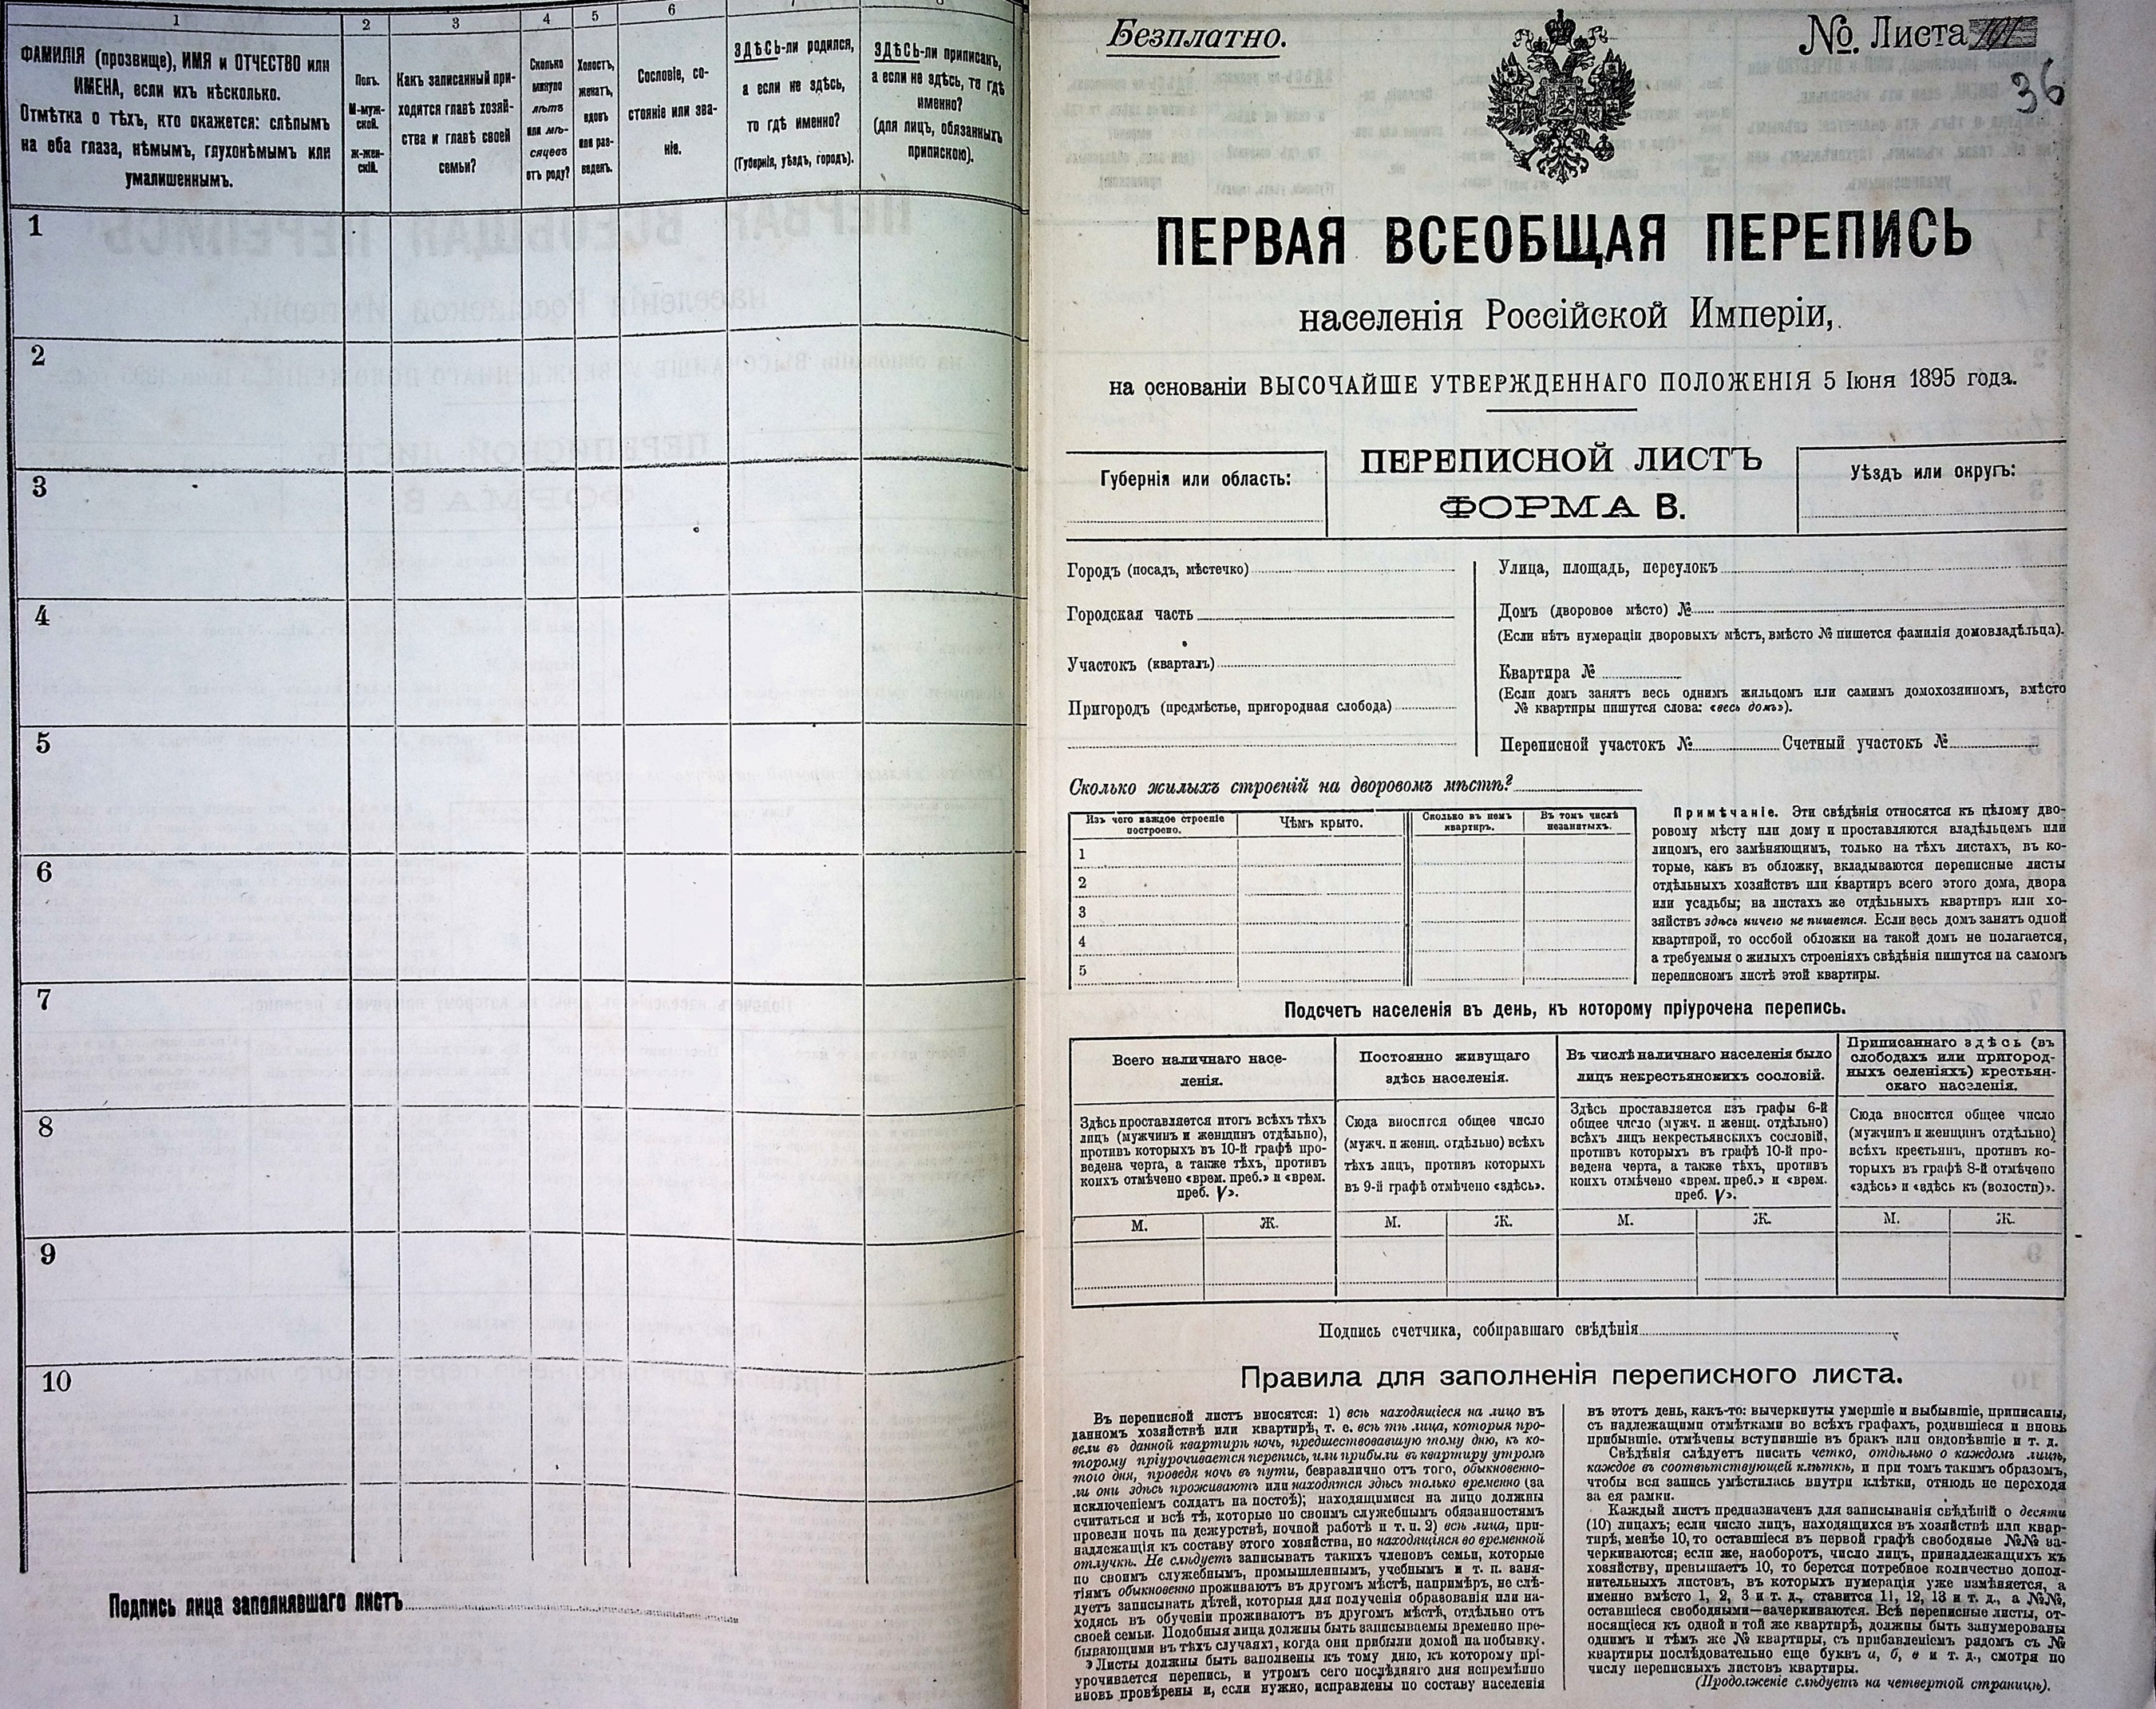 1
2
3
4
5
6
7
8
ФАМИЛІЯ (прозвище), ИМЯ и ОТЧЕСТВО или
ИМЕНА, если ихъ нѣсколько.
Отмѣтка о тѣхъ, кто окажется: слѣпымъ
на оба глаза, нѣмымъ, глухонѣмымъ или
умалишеннымъ.
Полъ.
М-муж-
ской.
Ж-жен-
скій.
Какъ записанный при-
ходятся главѣ хозяй-
ства и главѣ своей
семьи?
Сколько
минуло
лѣтъ
или мѣ-
сяцевъ
отъ роду?
Холостъ,
женатъ,
вдовъ
или раз-
веденъ.
Сословіе, со-
стояніе или зва-
ніе.
ЗДѢСЬ-ли родился,
а если не здѣсь,
то гдѣ именно?
(Губернія, уѣздъ, городъ).
ЗДѢСЬ-ли приписанъ,
а если не здѣсь, то гдѣ
именно?
(для лицъ, обязанныхъ
припискою).
1
2
3
4
5
6
7
8
9
10
Подпись лица заполнявшаго листъ
Безплатно.
№. Листа
36
ПЕРВАЯ ВСЕОБЩАЯ ПЕРЕПИСЬ
населенія Россійской Имперіи,
на основаніи ВЫСОЧАЙШЕ УТВЕРЖДЕННАГО ПОЛОЖЕНІЯ 5 Іюня 1895 года.
Губернія или область:
ПЕРЕПИСНОЙ ЛИСТЪ
ФОРМА В.
Уѣздъ или округъ:
Городъ (посадъ, мѣстечко)
Городская часть
Участокъ (кварталъ)
Пригородъ (предмѣстье, пригородная слобода)
Улица, площадь, переулокъ
Домъ (дворовое мѣсто) №
(Если нѣтъ нумераціи дворовыхъ мѣстъ, вмѣсто № пишется фамилія домовладѣльца).
Квартира №
(Если домъ занятъ весь однимъ жильцомъ или самимъ домохозяиномъ, вмѣсто
№ квартиры пишутся слова: «весь домъ»).
Переписной участокъ № Счетный участокъ №
Сколько жилыхъ строеній на дворовомъ мѣстѣ?
Изъ чего каждое строеніе
построено.
Чѣмъ крыто.
Сколько въ немъ
квартиръ.
Въ томъ числѣ
незанятыхъ.
1
2
3
4
5
Примѣчаніе. Эти свѣдѣнія относятся къ цѣлому дво-
ровому мѣсту или дому и проставляются владѣльцемъ или
лицомъ, его замѣняющимъ, только на тѣхъ листахъ, въ ко-
торые, какъ въ обложку, вкладываются переписные листы
отдѣльныхъ хозяйствъ или квартиръ всего этого дома, двора
или усадьбы; на листахъ же отдѣльныхъ квартиръ или хо-
зяйствъ здѣсь ничего не пишется. Если весь домъ занятъ одной
квартирой, то особой обложки на такой домъ не полагается,
а требуемыя о жилыхъ строеніяхъ свѣдѣнія пишутся на самомъ
переписномъ листѣ этой квартиры.
Подсчетъ населенія въ день, къ которому пріурочена перепись.
Всего наличнаго насе-
ленія.
Постоянно живущаго
здѣсь населенія.
Въ числѣ наличнаго населенія было
лицъ некрестьянскихъ сословій.
Приписаннаго здѣсь (въ
слободахъ или пригород-
ныхъ селеніяхъ) крестьян-
скаго населенія.
Здѣсь проставляется итогъ всѣхъ тѣхъ
лицъ (мужчинъ и женщинъ отдѣльно),
противъ которыхъ въ 10-й графѣ про-
ведена черта, а также тѣхъ, противъ
коихъ отмѣчено «врем. преб.» и «врем.
преб. V».
Сюда вносится общее число
(мужч. и женщ. отдѣльно) всѣхъ
тѣхъ лицъ, противъ которыхъ
въ 9-й графѣ отмѣчено «здѣсь».
Здѣсь проставляется изъ графы 6-й
общее число (мужч. и женщ. отдѣльно)
всѣхъ лицъ некрестьянскихъ сословій,
противъ которыхъ въ графѣ 10-й про-
ведена черта, а также тѣхъ, противъ
коихъ отмѣчено «врем. преб.» и «врем.
преб. V».
Сюда вносится общее число
(мужчинъ и женщинъ отдѣльно)
всѣхъ крестьянъ, противъ ко-
торыхъ въ графѣ 8-й отмѣчено
«здѣсь» и «здѣсь къ (волости)».
М. Ж. М. Ж. М. Ж. М. Ж.
Подпись счетчика, собиравшаго свѣдѣнія
Правила для заполненія переписного листа.
Въ переписной листъ вносятся: 1) всѣ находящіеся на лицо въ
данномъ хозяйствѣ или квартирѣ, т. е. всѣ тѣ лица, которыя про-
вели въ данной квартирѣ ночь, предшествовавшую тому дню, къ ко-
торому пріурочивается перепись, или прибыли въ квартиру утромъ
того дня, проведя ночь въ пути, безразлично отъ того, обыкновенно-
ли они здѣсь проживаютъ или находятся здѣсь только временно (за
исключеніемъ солдатъ на постоѣ); находящимися на лицо должны
считаться и всѣ тѣ, которые по своимъ служебнымъ обязанностямъ
провели ночь на дежурствѣ, ночной работѣ и т. п. 2) всѣ лица, при-
надлежащія къ составу этого хозяйства, но находящіяся во временной
отлучкѣ. Не слѣдуетъ записывать такихъ членовъ семьи, которые
по своимъ служебнымъ, промышленнымъ, учебнымъ и т. п. заня-
тіямъ обыкновенно проживаютъ въ другомъ мѣстѣ, напримѣръ, не слѣ-
дуетъ записывать дѣтей, которыя для полученія образованія или на-
ходясь въ обученіи проживаютъ въ другомъ мѣстѣ, отдѣльно отъ
своей семьи. Подобныя лица должны быть записываемы временно пре-
бывающими въ тѣхъ случаяхъ, когда они прибыли домой на побывку.
Листы должны быть заполнены къ тому дню, къ которому прі-
урочивается перепись, и утромъ сего послѣдняго дня непремѣнно
вновь провѣрены и, если нужно, исправлены по составу населенія
въ этотъ день, какъ-то: вычеркнуты умершіе и выбывшіе, приписаны,
съ надлежащими отмѣтками во всѣхъ графахъ, родившіеся и вновь
прибывшіе, отмѣчены вступившіе въ бракъ или овдовѣвшіе и т. д.
Свѣдѣнія слѣдуетъ писать четко, отдѣльно о каждомъ лицѣ,
каждое въ соотвѣтствующей клѣткѣ, и при томъ такимъ образомъ,
чтобы вся запись умѣстилась внутри клѣтки, отнюдь не переходя
за ея рамки.
Каждый листъ предназначенъ для записыванія свѣдѣній о десяти
(10) лицахъ; если число лицъ, находящихся въ хозяйствѣ или квар-
тирѣ, менѣе 10, то оставшіеся въ первой графѣ свободные №№ за-
черкиваются; если же, наоборотъ, число лицъ, принадлежащихъ къ
хозяйству, превышаетъ 10, то берется потребное количество допол-
нительныхъ листовъ, въ которыхъ нумерація уже измѣняется, а
именно вмѣсто 1, 2, 3 и т. д., ставится 11, 12, 13 и т. д., а №№,
оставшіеся свободными—зачеркиваются. Всѣ переписные листы, от-
носящіеся къ одной и той же квартирѣ, должны быть занумерованы
однимъ и тѣмъ же № квартиры, съ прибавленіемъ рядомъ съ №
квартиры послѣдовательно еще буквъ а, б, в и т. д., смотря по
числу переписныхъ листовъ квартиры.
(Продолженіе слѣдуетъ на четвертой страницѣ).